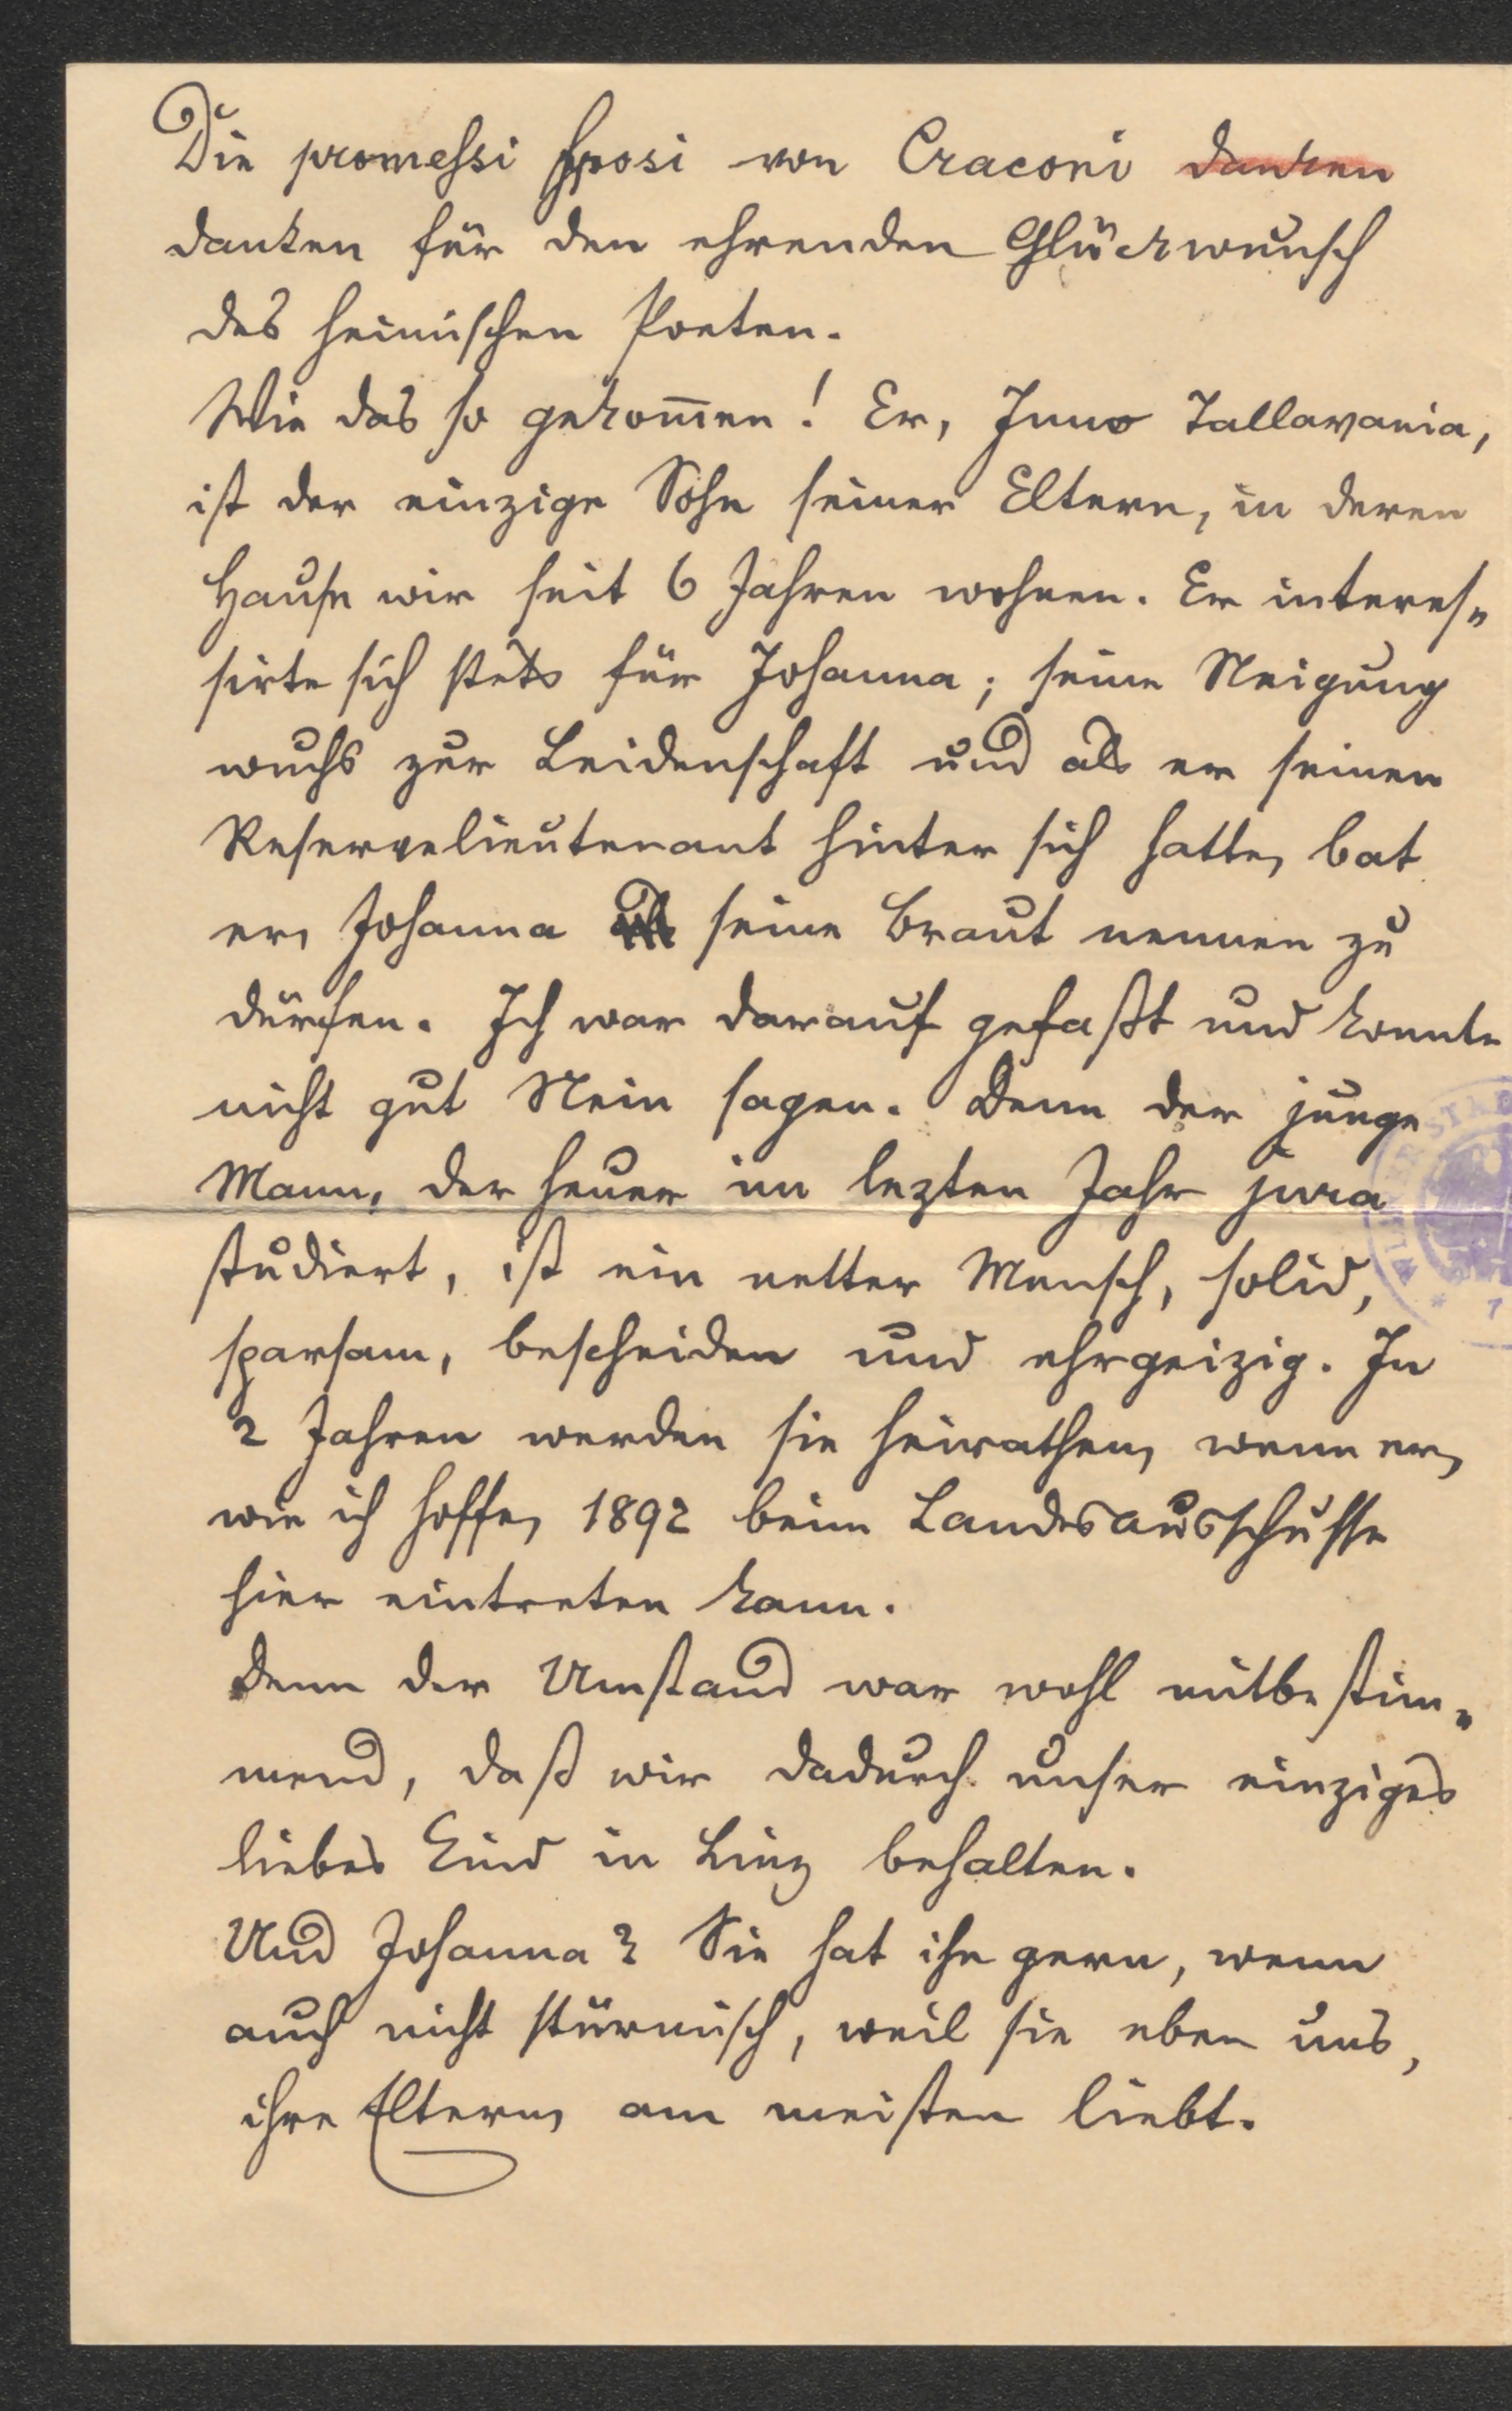 Die promessi sposi von Craconi danken
danken für den ehrenden Glückwunsch
des heimischen Poeten.
Wie das so gekom̅en! Er, Juno Tallavania,
ist der einzige Sohn seiner Eltern, in deren
Hause wir seit 6 Jahren wohnen. Er interes„
sirte sich stets für Johanna; seine Neigung
wuchs zur Leidenschaft und als er seinen
Reservelieutenant hinter sich hatte, bat
er, Johanna seine Braut nennen zu
dürfen. Ich war darauf gefaßt und konnte
nicht gut Nein sagen. Denn der junge
Mann, der heuer im lezten Jahr jura
studiert, ist ein netter Mensch, solid,
sparsam, bescheiden und ehrgeizig. In
2 Jahren werden sie heirathen, wenn er,
wie ich hoffe, 1892 beim Landesausschusse
hier eintreten kann.
Denn der Umstand war wohl mitbestim„
mend, daß wir dadurch unser einziges
liebes Kind in Linz behalten.
Und Johanna? Sie hat ihn gern, wenn
auch nicht stürmisch, weil sie eben uns,
ihre Eltern, am meisten liebt.